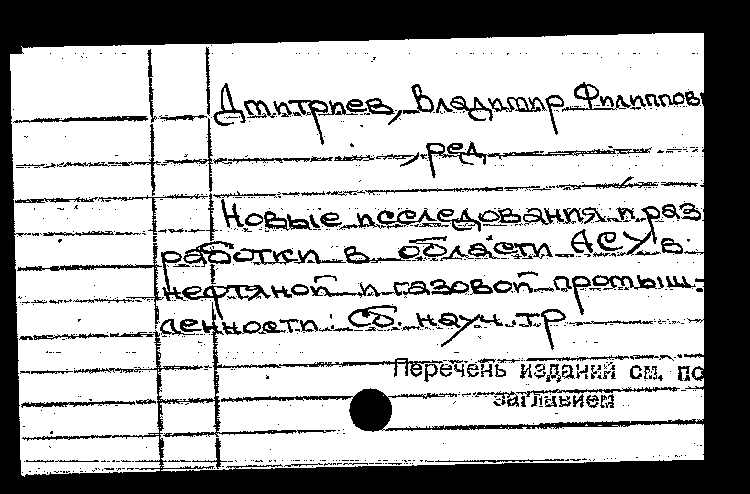 Дмитриев, Владимир Филиппови
, ред
Новые исследования и раз
работки в области АСУ в
нефтяной и газовой промыш-
ленности: Сб. науч. тр
Перечень изданий см. по
заглавием